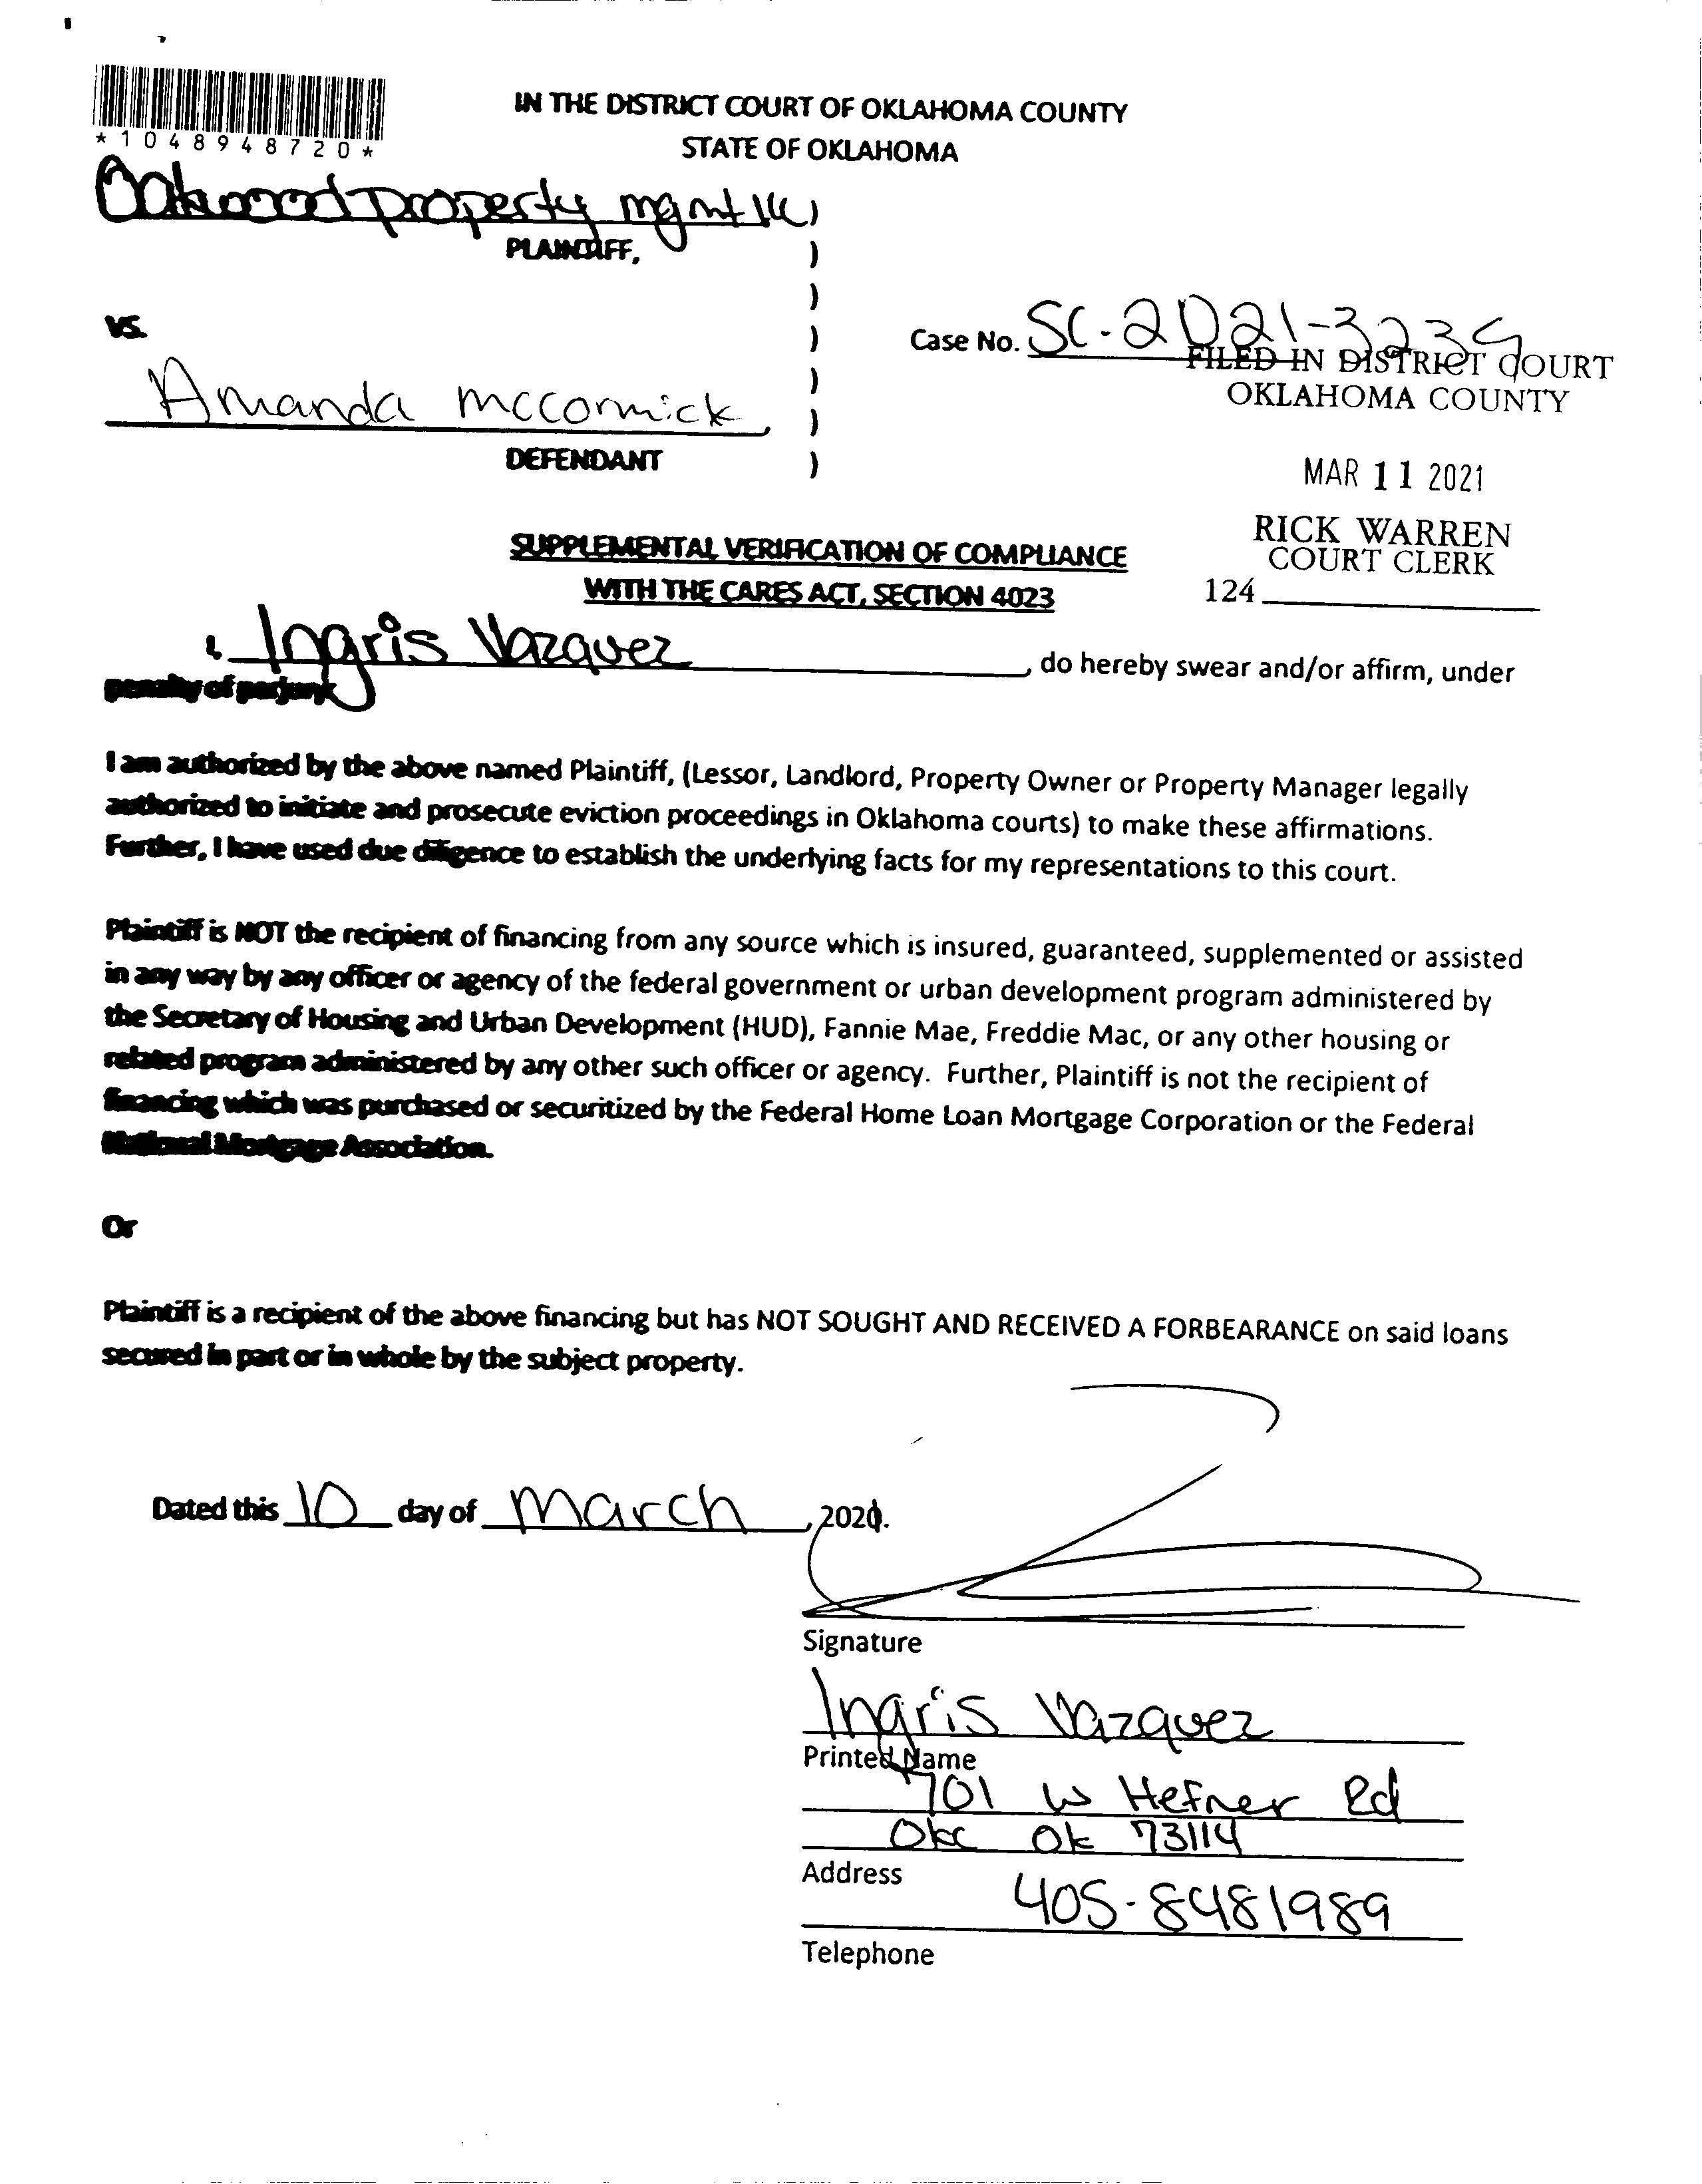 *1048948720*
IN THE DISTRICT COURT OF OKLAHOMA COUNTY
STATE OF OKLAHOMA
Oakwood property mgmt llc )
PLAINTIFF, )
)
vs. )
Case No. SC-2021-3239
FILED IN DISTRICT COURT
OKLAHOMA COUNTY
)
Amanda mccormick, )
DEFENDANT )
MAR 11 2021
RICK WARREN
COURT CLERK
124
SUPPLEMENTAL VERIFICATION OF COMPLIANCE
WITH THE CARES ACT, SECTION 4023
I, Ingris Vazquez, do hereby swear and/or affirm, under
penalty of perjury
I am authorized by the above named Plaintiff, (Lessor, Landlord, Property Owner or Property Manager legally
authorized to initiate and prosecute eviction proceedings in Oklahoma courts) to make these affirmations.
Further, I have used due diligence to establish the underlying facts for my representations to this court.
Plaintiff is NOT the recipient of financing from any source which is insured, guaranteed, supplemented or assisted
in any way by any officer or agency of the federal government or urban development program administered by
the Secretary of Housing and Urban Development (HUD), Fannie Mae, Freddie Mac, or any other housing or
related program administered by any other such officer or agency. Further, Plaintiff is not the recipient of
financing which was purchased or securitized by the Federal Home Loan Mortgage Corporation or the Federal
National Mortgage Association.
Or
Plaintiff is a recipient of the above financing but has NOT SOUGHT AND RECEIVED A FORBEARANCE on said loans
secured in part or in whole by the subject property.
Dated this 10 day of March, 2021.
Signature
Ingris Vazquez
Printed Name
701 W Hefner Rd
Okc Ok 73114
Address
405-8481989
Telephone